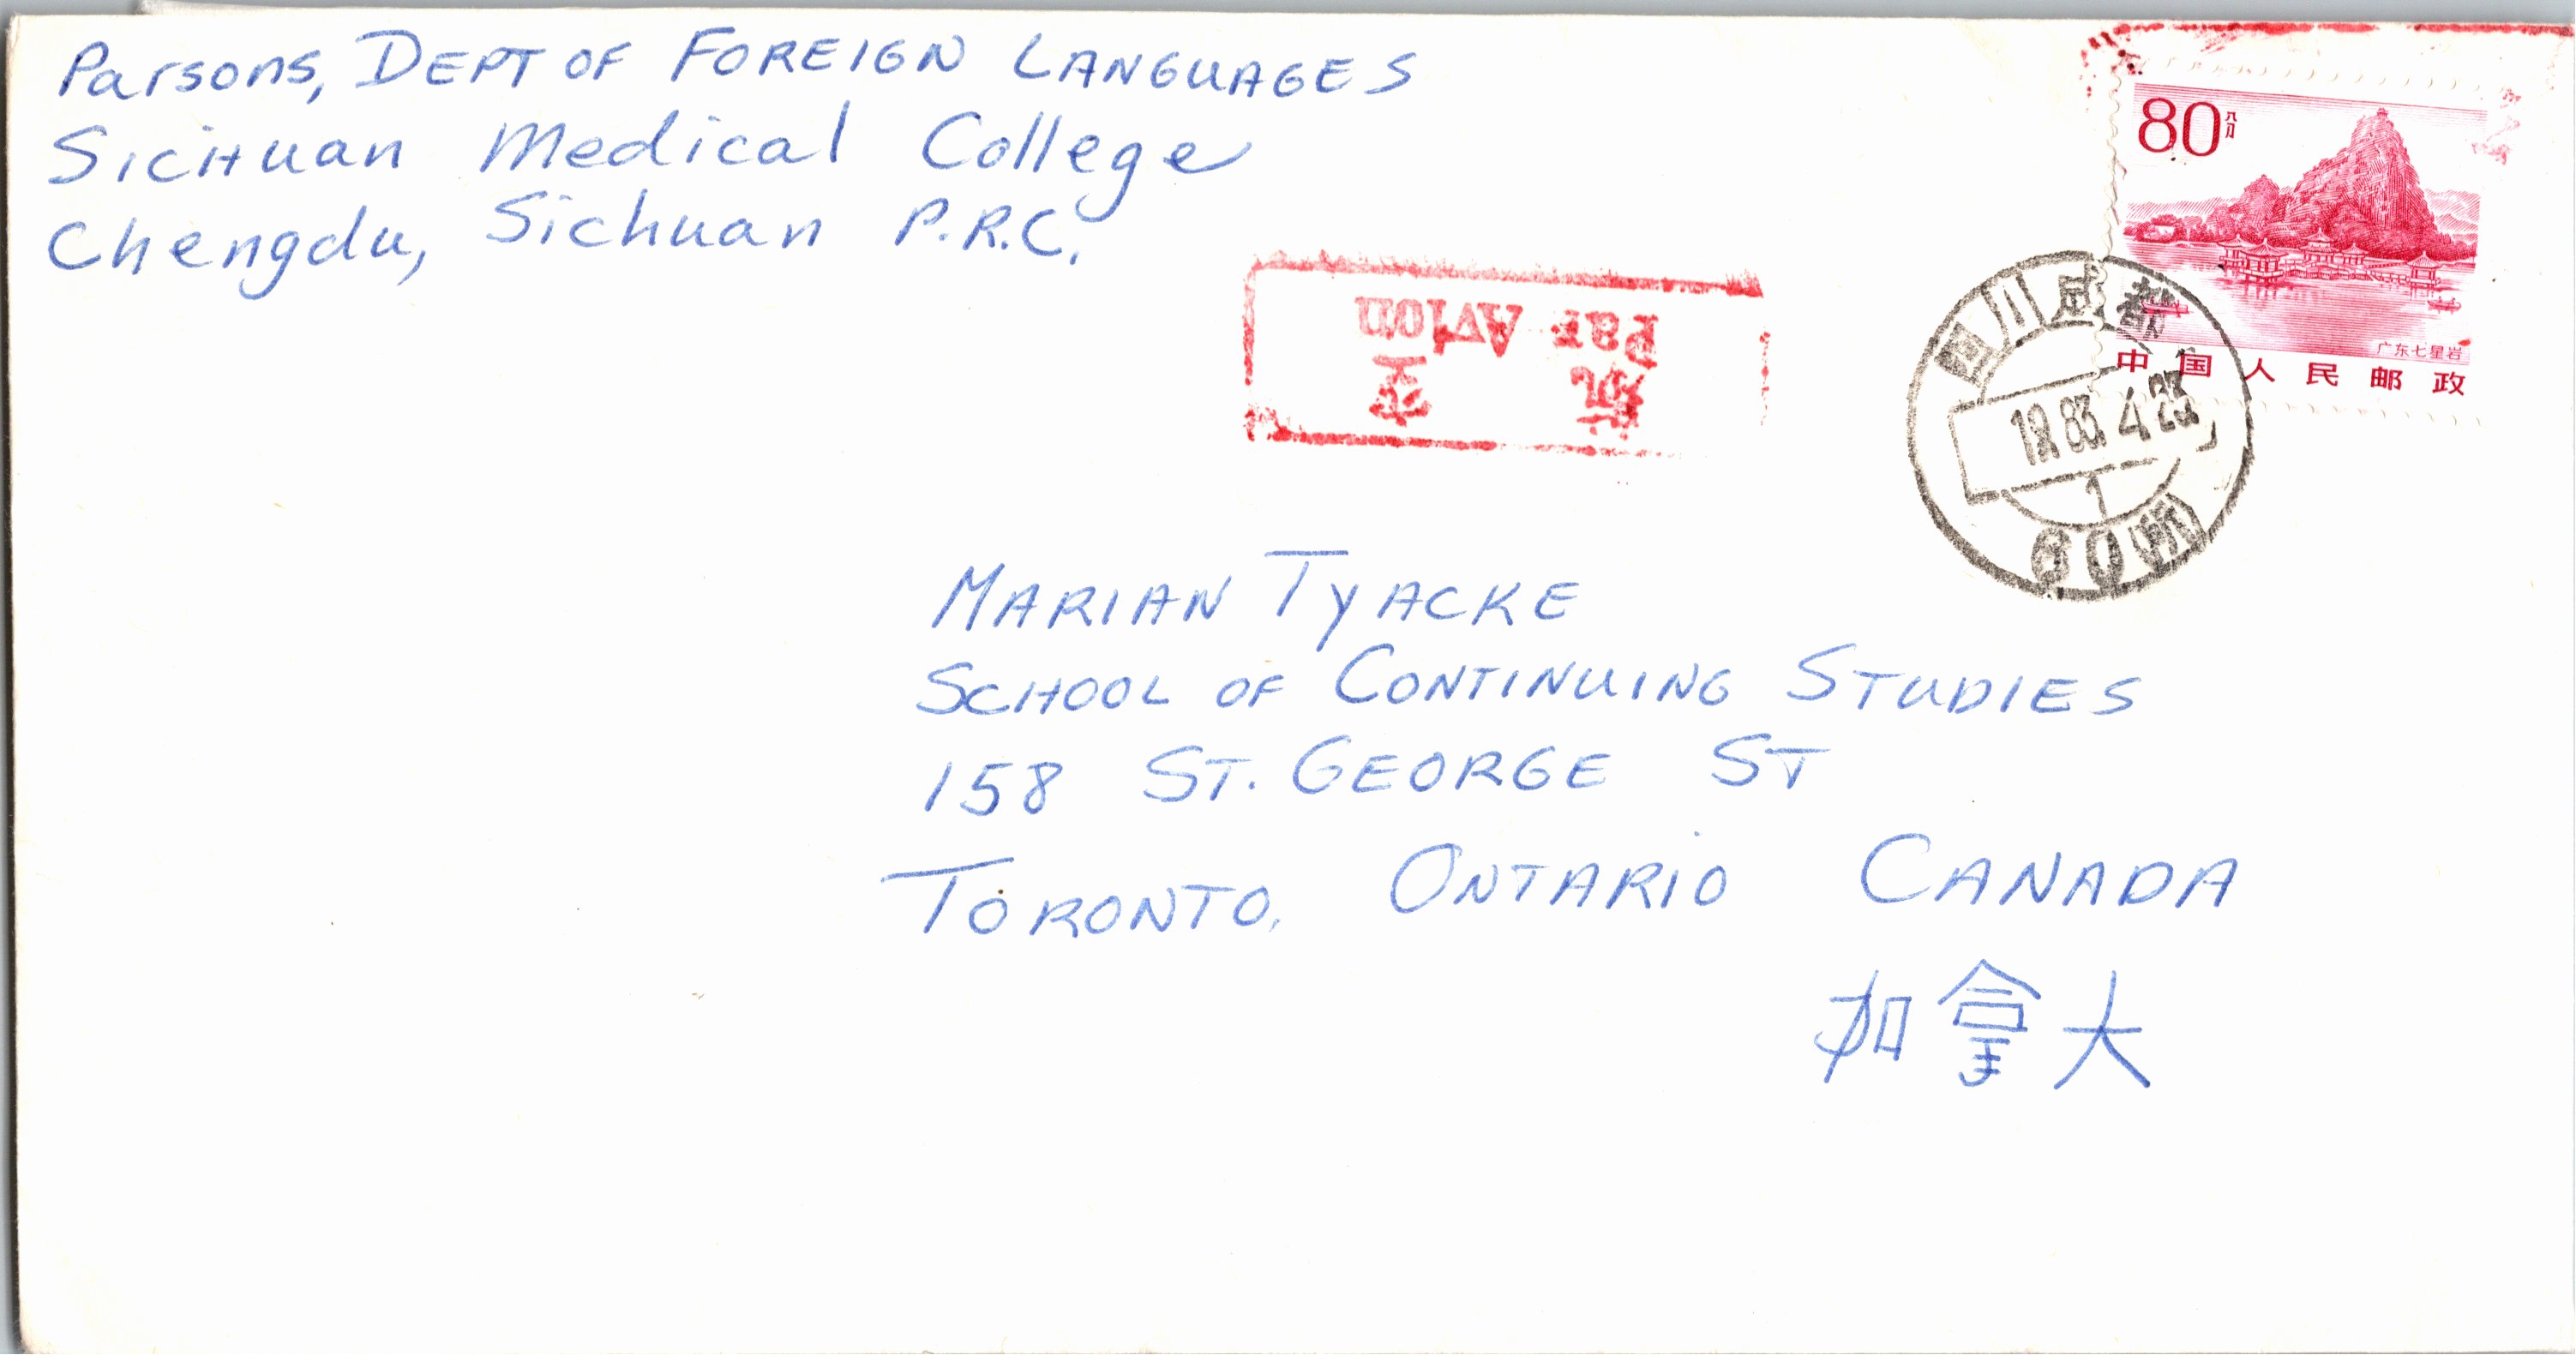 Parsons, DEPT OF FOREIGN LANGUAGES
SicHuan Medical College
Chengdu, Sichuan P.R.C.
80分
广东七星岩
中国人民邮政
航空
Par Avion
四川成都
1983.4.23
1
60所
MARIAN TYACKE
SCHOOL OF CONTINUING STUDIES
158 ST. GEORGE ST
TORONTO, ONTARIO CANADA
加拿大